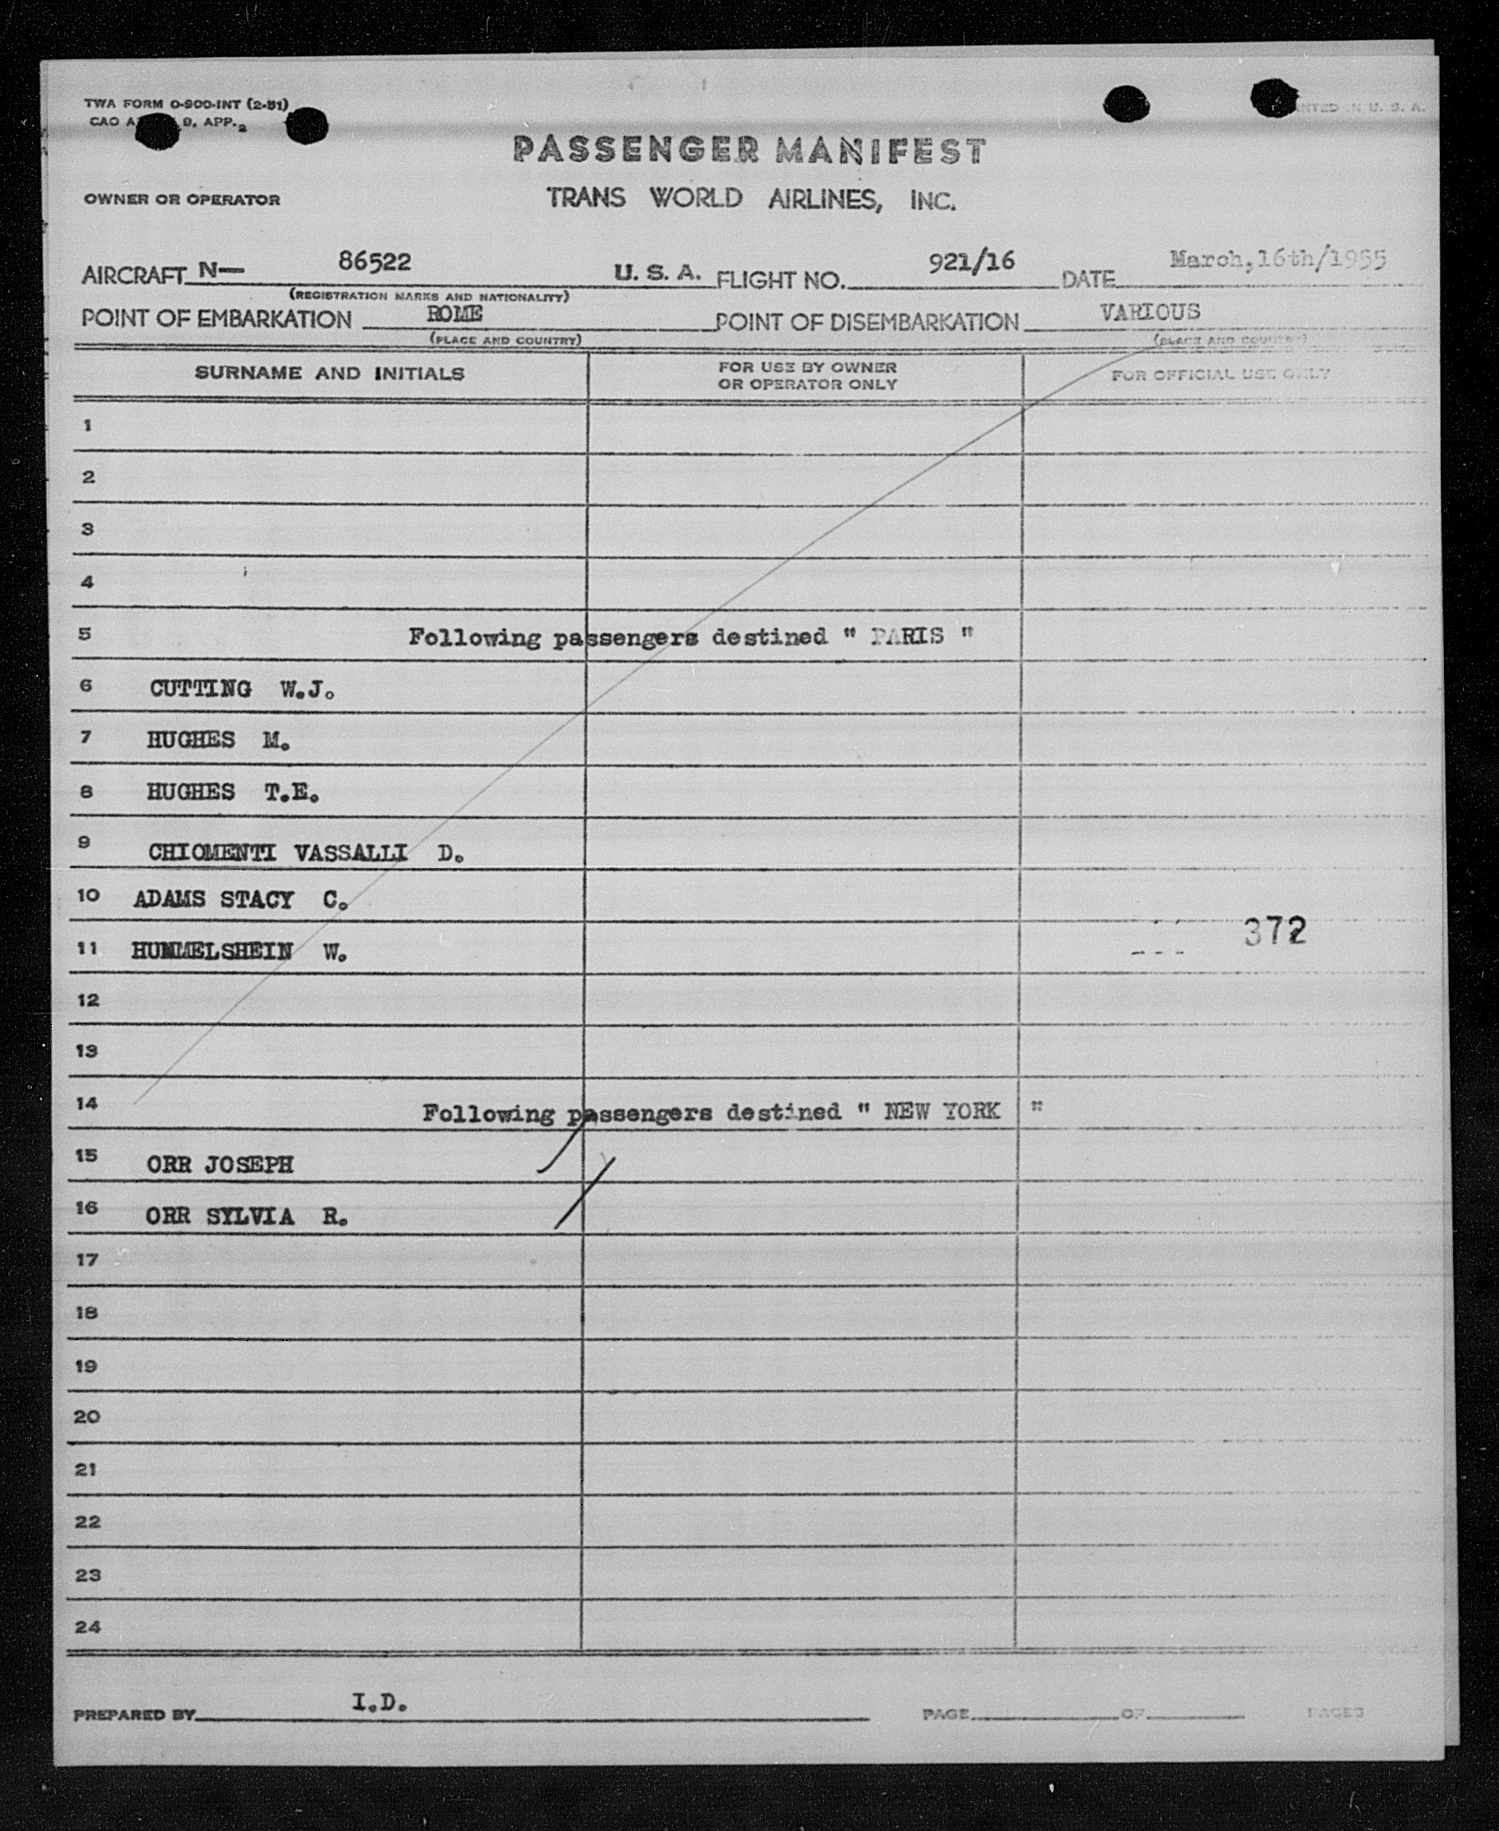 TWA FORM O-900-INT (2-51)
CAO 9. APP. 2
PRINTED IN U. S. A.
PASSENGER MANIFEST
OWNER OR OPERATOR
TRANS WORLD AIRLINES, INC.
AIRCRAFT N— 86522 U. S. A. FLIGHT NO. 921/16 DATE March,16th/1955
(REGISTRATION MARKS AND NATIONALITY)
POINT OF EMBARKATION ROME POINT OF DISEMBARKATION VARIOUS
(PLACE AND COUNTRY) (PLACE AND COUNTRY)
SURNAME AND INITIALS FOR USE BY OWNER OR OPERATOR ONLY FOR OFFICIAL USE ONLY
1
2
3
4
5 Following passengers destined " PARIS "
6 CUTTING W.J.
7 HUGHES M.
8 HUGHES T.E.
9 CHIOMENTI VASSALLI D.
10 ADAMS STACY C.
11 HUMMELSHEIN W. 372
12
13
14 Following passengers destined " NEW YORK "
15 ORR JOSEPH
16 ORR SYLVIA R.
17
18
19
20
21
22
23
24
PREPARED BY I.D. PAGE OF PAGES